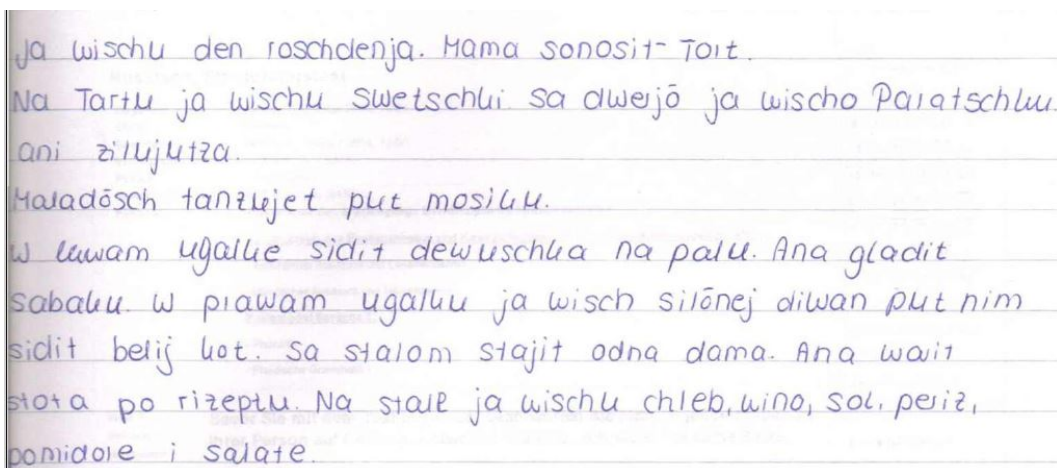 Ja wischu den roschdenja. Mama sonosit- Tort.
Na Tartu ja wischu Swetschki. sa dwerjō ja wischo Paratschku.
ani zilujutza.
Maladōsch tanzujet put mosiku.
W lewam ugalke sidit dewuschka na palu. Ana gladit
sabaku. W prawam ugalku ja wisch silōnej diwan put nim
sidit belij kot. Sa stalom stajit odna dama. Ana warit
stota po rizeptu. Na stale ja wischu chleb, wino, sol, periz,
pomidore i salate.